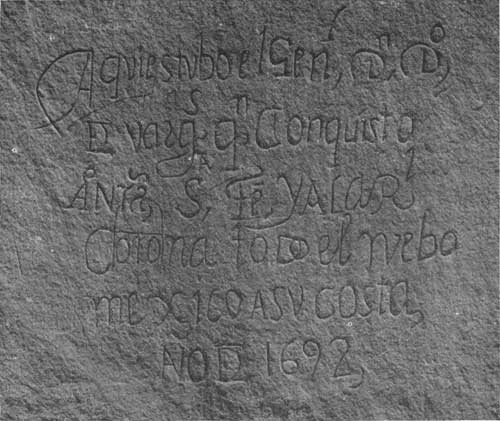 Aquiestvbo el Genl, Dn, Do,
DE vargas qn Conquisto
ANTRa, Sa, FE, YALARl
Corona todo el nvebo
mexico ASV costa,
NO DE 1692,